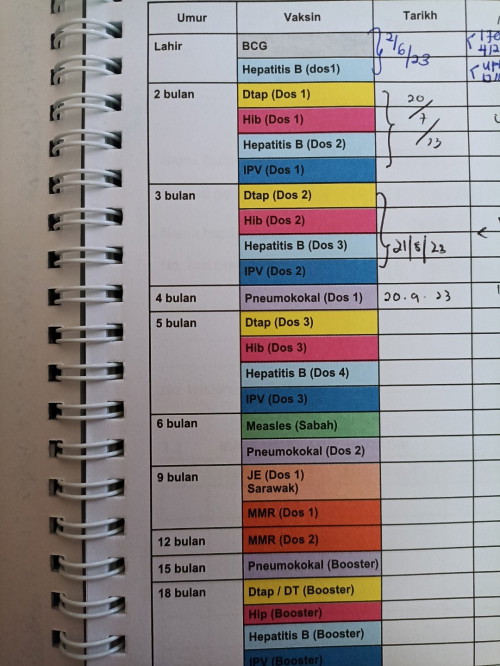 Umur Vaksin Tarikh
Lahir BCG 2/6/23
Hepatitis B (dos1)
2 bulan Dtap (Dos 1) 20/7/23
Hib (Dos 1)
Hepatitis B (Dos 2)
IPV (Dos 1)
3 bulan Dtap (Dos 2)
Hib (Dos 2)
Hepatitis B (Dos 3) 21/8/23
IPV (Dos 2)
4 bulan Pneumokokal (Dos 1) 20.9.23
5 bulan Dtap (Dos 3)
Hib (Dos 3)
Hepatitis B (Dos 4)
IPV (Dos 3)
6 bulan Measles (Sabah)
Pneumokokal (Dos 2)
9 bulan JE (Dos 1)
Sarawak)
MMR (Dos 1)
12 bulan MMR (Dos 2)
15 bulan Pneumokokal (Booster)
18 bulan Dtap / DT (Booster)
Hip (Booster)
Hepatitis B (Booster)
IPV (Booster)